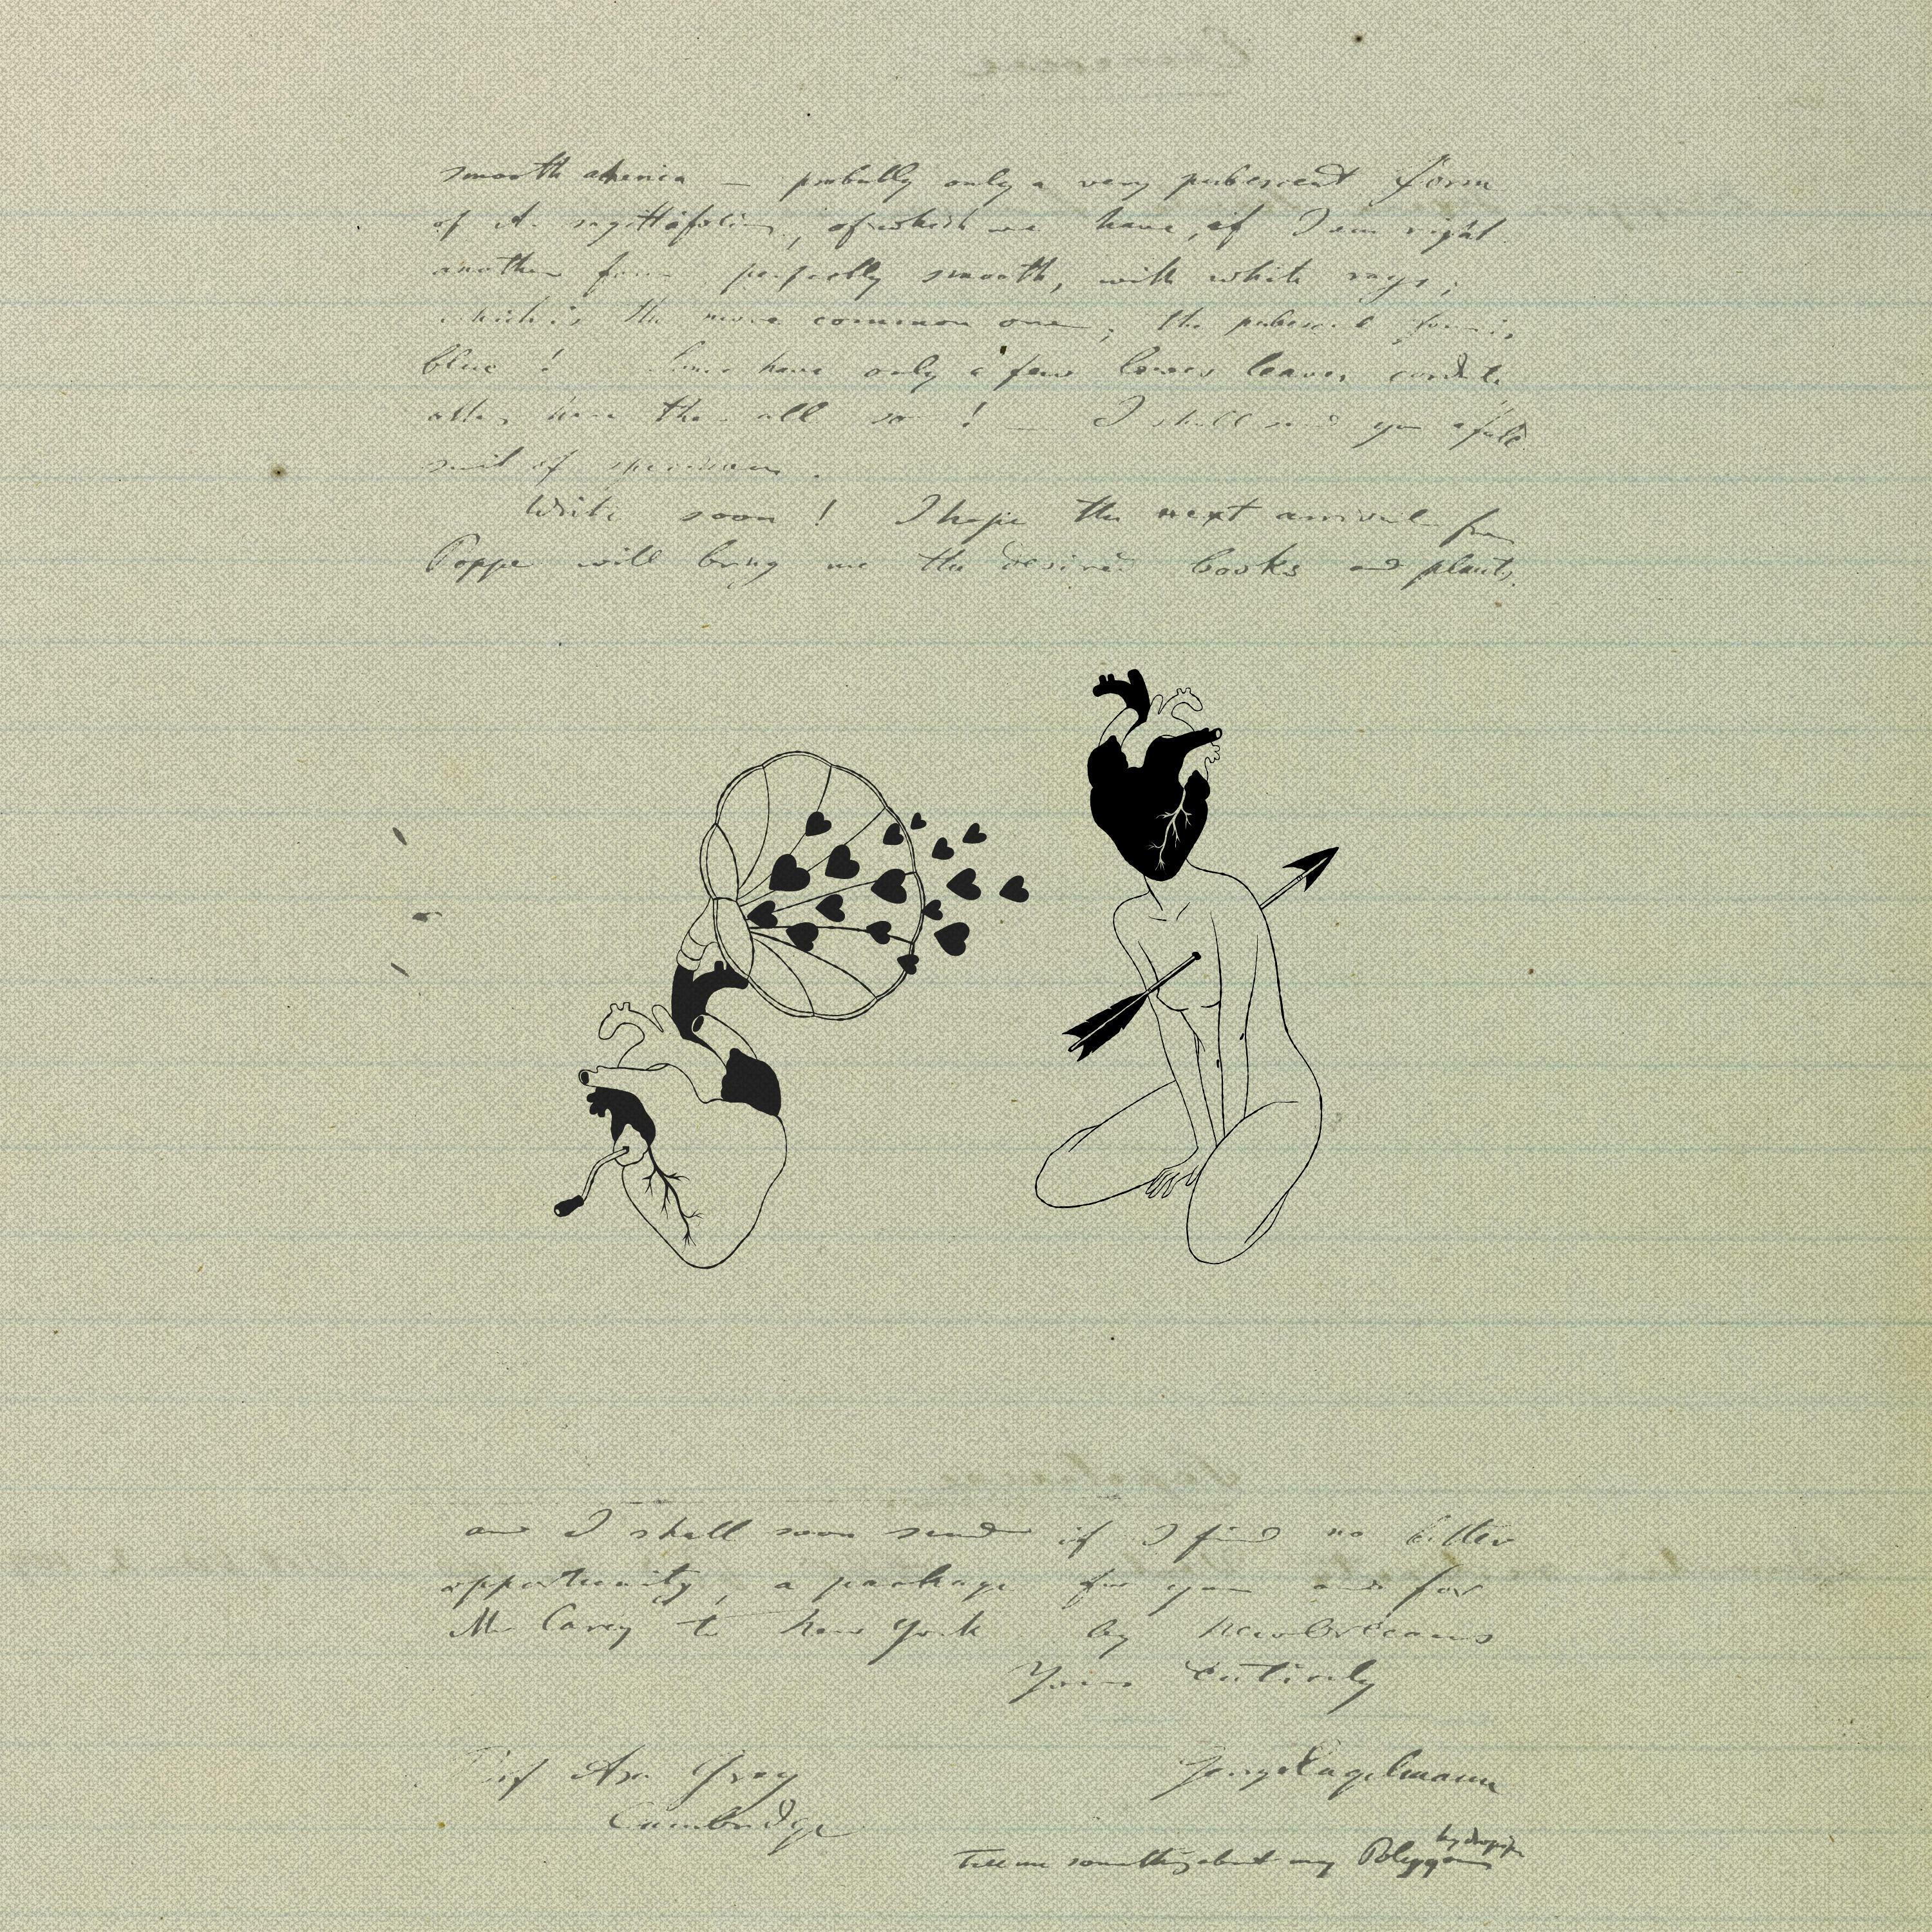 smooth – probably only a very pubescent form
of A. sagittifolius, of which we have, if I am right
another form perfectly smooth, with white rays,
which is the more common one; the pubescent form is
blue! Some have only a few lower leaves cordate
others have them all so! – I shall send you a full
suit of specimens.
Write soon! I hope the next arrival from
Poppe will bring me the desired books and plants,
and I shall soon send if I find no better
opportunity, a package for you and for
Mr Carey to New York by New Orleans
Yours entirely
George Engelmann
Prof Asa Gray
Cambridge
Tell me something about my